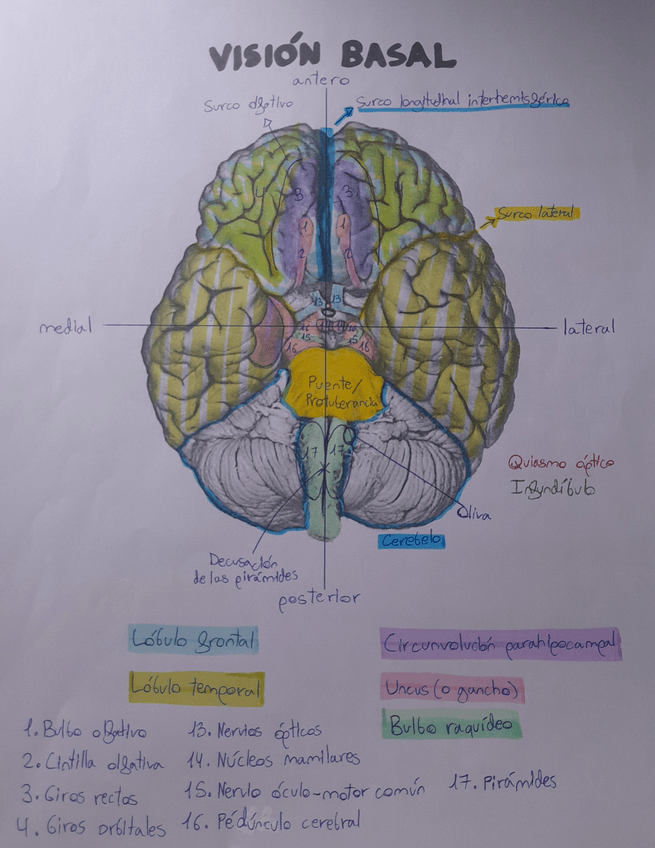 VISIÓN BASAL
antero
Surco olfativo
Surco longitudinal interhemisférico
Surco lateral
4
3
3
1
1
2
2
13
13
medial
lateral
15
15
16
16
Puente/
Protuberancia
17
17
Quiasmo óptico
Infundíbulo
Oliva
Cerebelo
Decusación
de las pirámides
posterior
Lóbulo frontal
Circunvolución parahipocampal
Lóbulo temporal
Uncus (o gancho)
Bulbo raquídeo
1. Bulbo olfativo
2. Cintilla olfativa
3. Giros rectos
4. Giros orbitales
13. Nervios ópticos
14. Núcleos mamilares
15. Nervio óculo-motor común
16. Pedúnculo cerebral
17. Pirámides